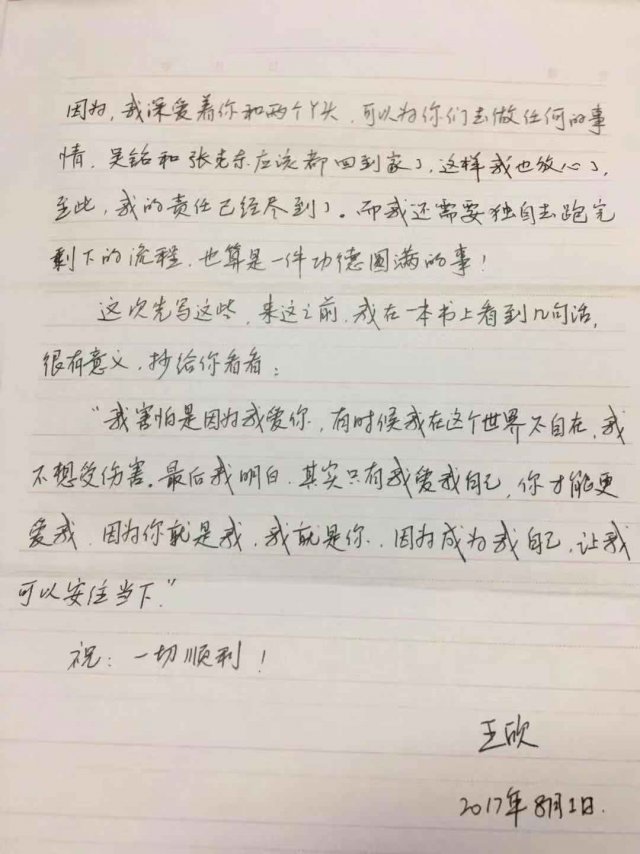 因为，我深爱着你和两个丫头，可以为你们去做任何的事
情，吴铭和张克东应该都回到家了，这样我也放心了，
至此，我的责任已经尽到了。而我还需要独自去跑完
剩下的流程，也算是一件功德圆满的事！
这次先写这些，来这之前，我在一本书上看到几句话，
很有意义，抄给你看看：
“我害怕是因为我爱你，有时候我在这个世界不自在，我
不想受伤害。最后我明白，其实只有我爱我自己，你才能更
爱我，因为你就是我，我就是你，因为成为我自己，让我
可以安住当下。”
祝：一切顺利！
王欣
2017年8月1日.